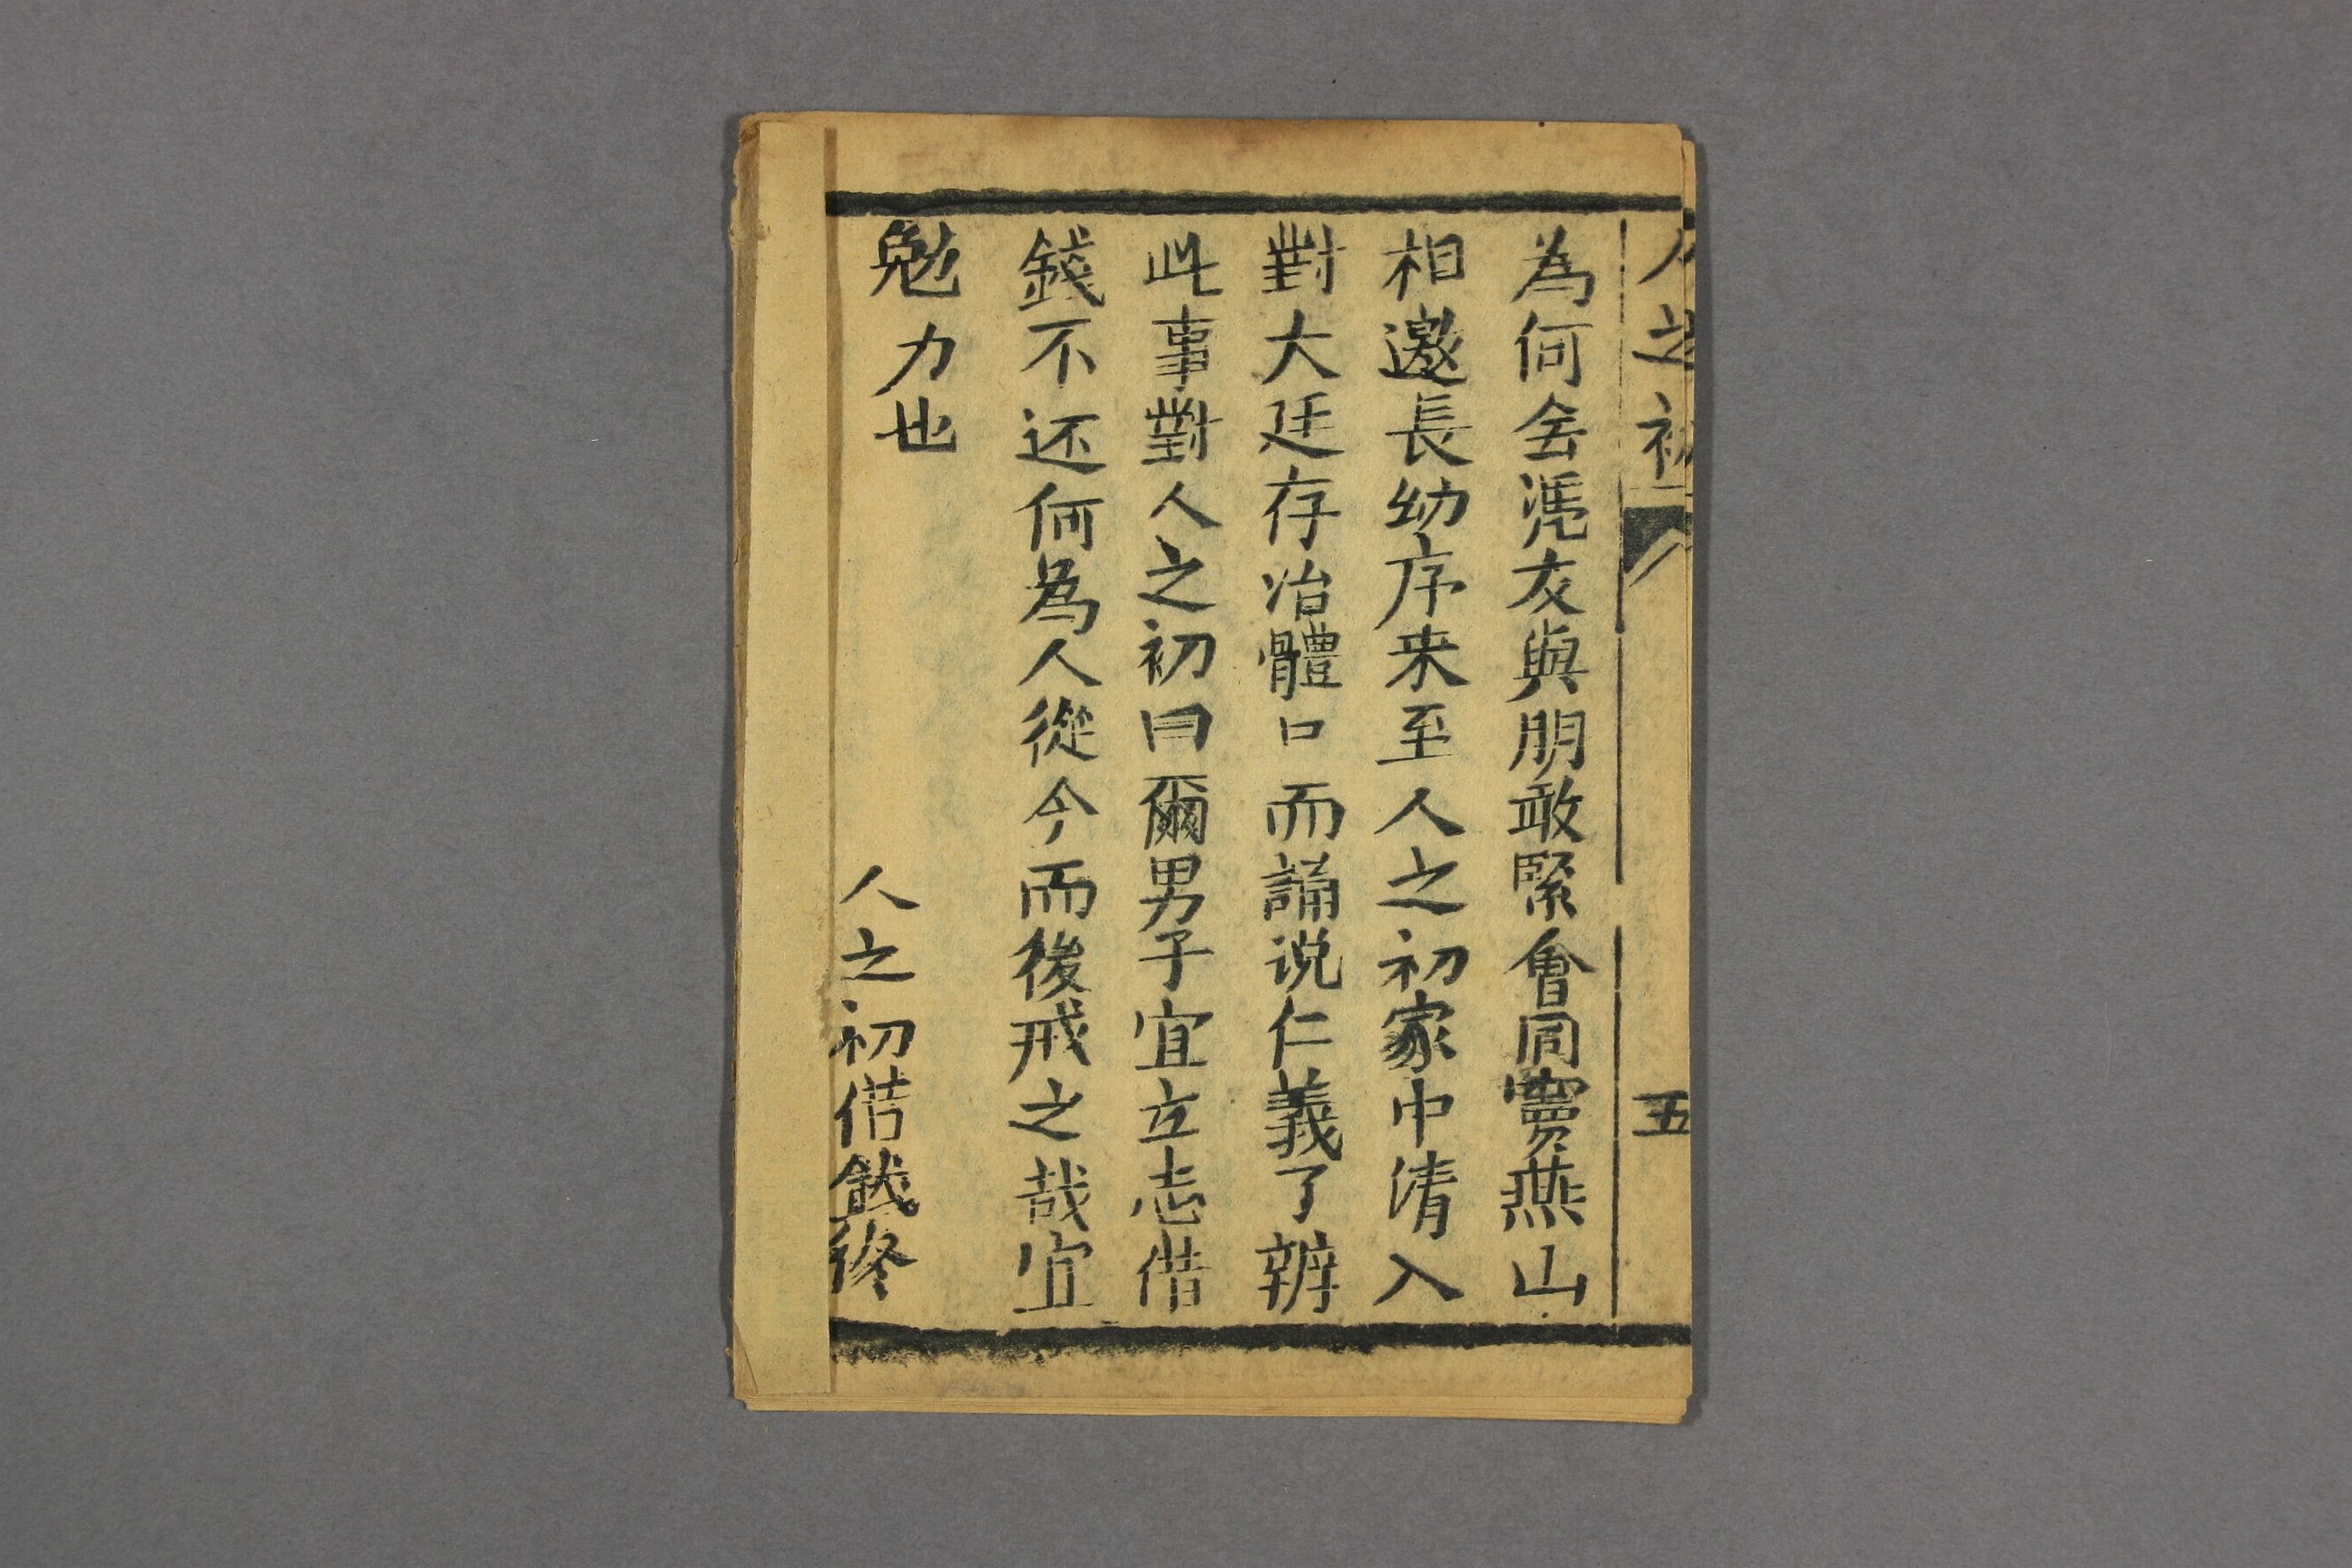 人之初
五
為何舍凴友與朋敢緊會同竇燕山
相邀長幼序来至人之初家中清入
對大廷存冶體口而誦说仁義了辨
此事對人之初曰爾男子宜立志借
錢不还何為人從今而後戒之哉宜
勉力也
人之初借錢終